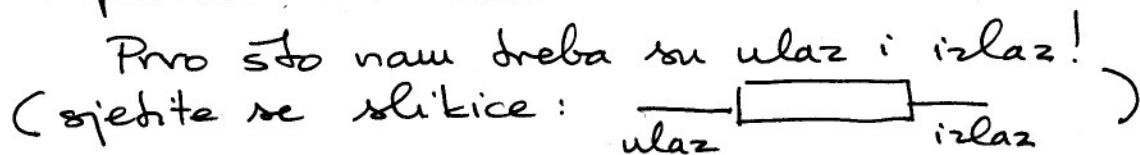 Prvo što nam treba su ulaz i izlaz!
(sjetite se slikice: ulaz izlaz )